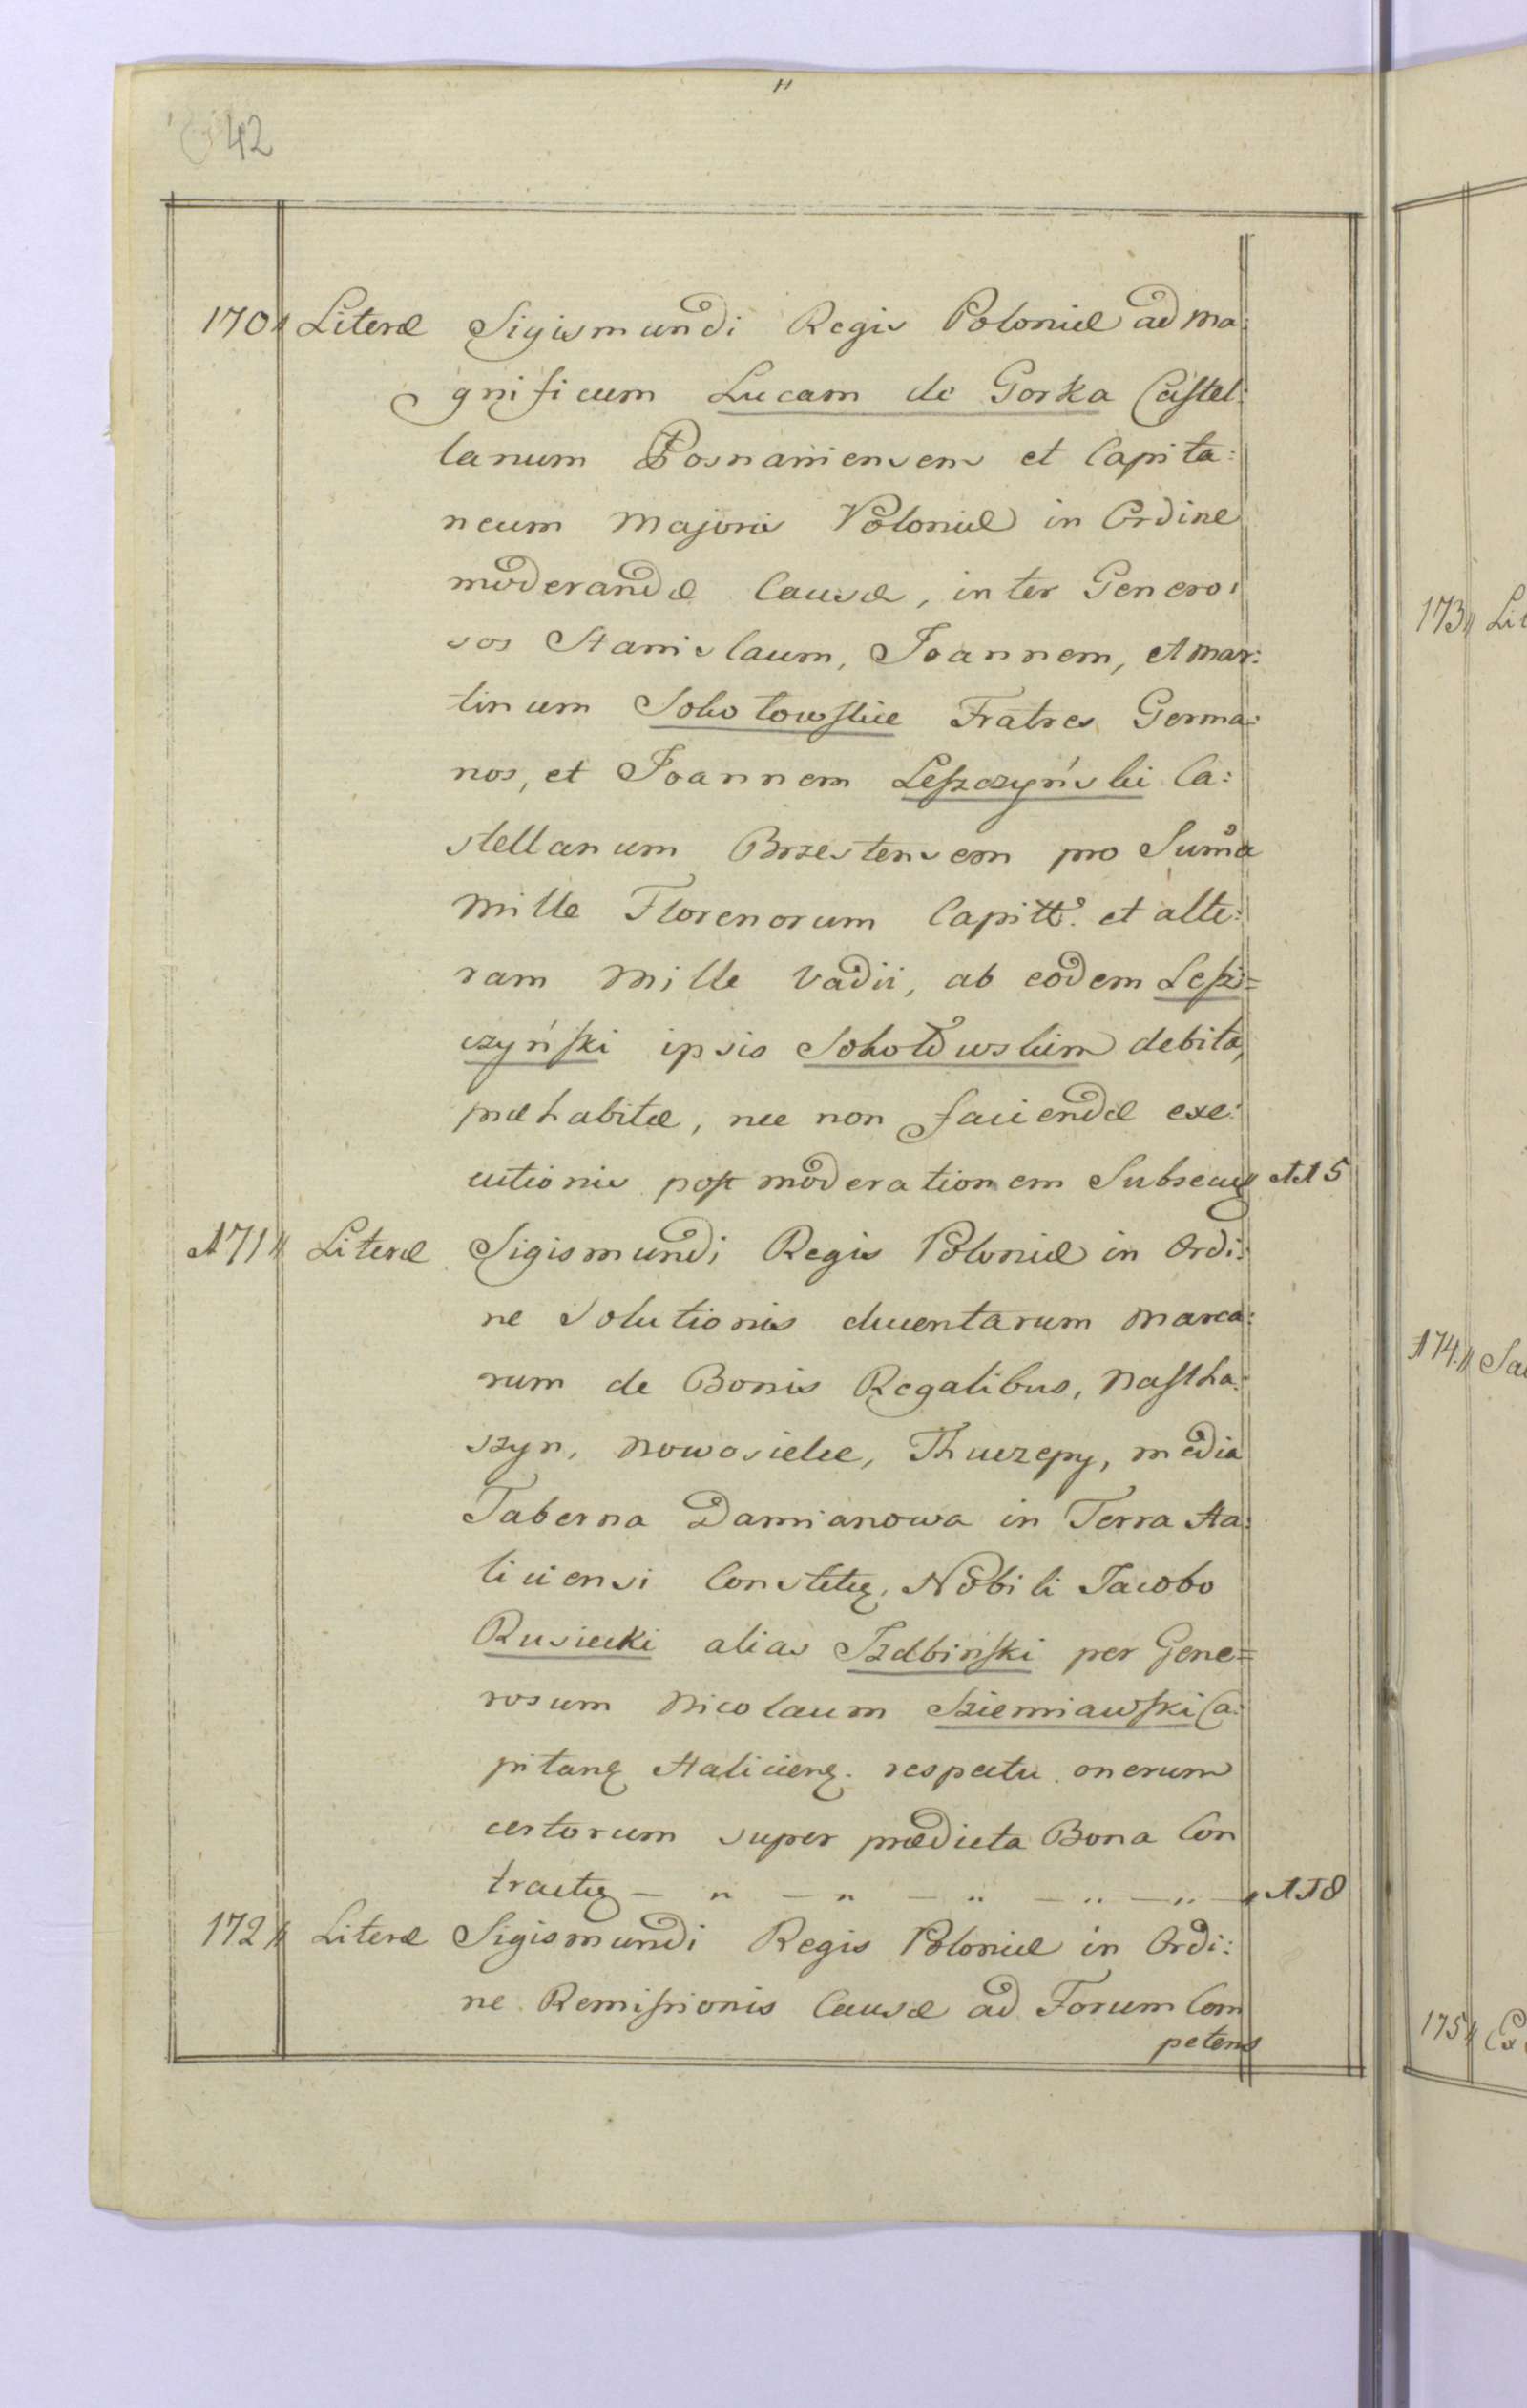 42
170 Literæ Sigismundi Regis Poloniæ ad Ma:
gnificum Lucam de Gorka Castel:
lanum Posnaniensem et Capita:
neum Majoris Poloniæ in Ordine
moderandæ Causæ, inter Genero:
sos Stanislaum, Joannem, et Mar:
tinum Sokołowskie Fratres Germa:
nos, et Joannem Leszczyński Ca:
stellanum Brzestensem pro Suma
Mille Florenorum Capitt. et alte:
ram Mille Vadii, ab eodem Lesz=
czyński ipsis Sokołowskim debita,
præhabitæ, nec non faciendæ exe:
cutionis post moderationem Subsecuꝫ 115
171 Literæ Sigismundi Regis Poloniæ in Ordi:
ne Solutionis ducentarum Marca:
rum de Bonis Regalibus, Nastha:
szyn, Nowosielce, Thuczepy, media
Taberna Damianowa in Terra Ha:
liciensi Constitꝫ, Nobili Jacobo
Rusiecki alias Izdbiński per Gene=
rosum Nicolaum Sziemiawski Ca:
pitanꝫ Halicienꝫ. respectu onerum
certorum super prædicta Bona Con
tractꝫ — „ — „ — „ — „ — „ — 118
172 Literæ Sigismundi Regis Poloniæ in Ordi:
ne Remissionis Causæ ad Forum Com
petens
173 Li
174. Sa
175